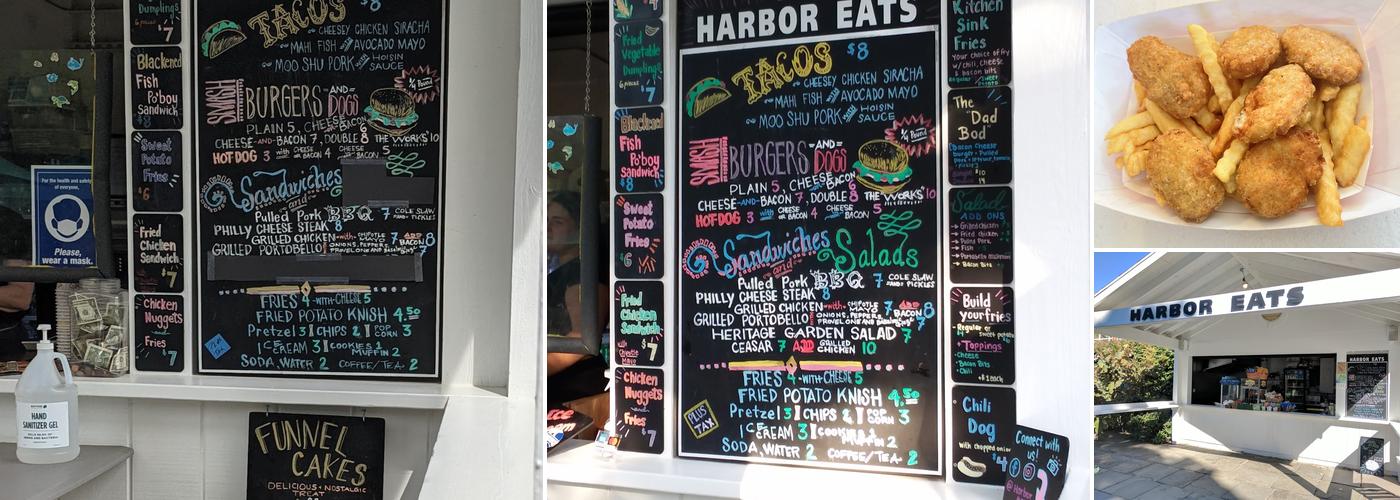 Dumplings
6 pieces $7
Blackened
Fish
Po'boy
Sandwich
$8
Sweet
Potato
Fries
$6
Fried
Chicken
Sandwich
$7
Chicken
Nuggets
and
Fries $7
TACOS $8
CHEESEY CHICKEN SIRACHA
MAHI FISH AND AVOCADO MAYO
MOO SHU PORK HOISIN
SAUCE
SMASH BURGERS AND DOGS
1/4 Pound
PLAIN 5, CHEESE 6 BACON
CHEESE-AND-BACON 7, DOUBLE 8 THE WORKS' 10
HOT DOG 3 with CHEESE OR BACON 4 CHEESE BACON 5
Sandwiches
and
Pulled Pork BBQ 7 COLE SLAW AND PICKLES
PHILLY CHEESE STEAK 8
GRILLED CHICKEN with CHIPOTLE MAYO 7 ADD BACON 8
GRILLED PORTOBELLO ONIONS, PEPPERS, PROVELONE AND 7
FRIES 4 WITH CHEESE 5
FRIED POTATO KNISH 4.50
Pretzel 3 CHIPS 2 POP CORN 3
ICE CREAM 3 COOKIES 1
MUFFIN 2
SODA, WATER 2 COFFEE/TEA 2
PLUS TAX
For the health and safety
of everyone,
Please,
wear a mask.
HAND
SANITIZER GEL
FUNNEL
CAKES
DELICIOUS + NOSTALGIC
TREAT
HARBOR EATS
Fried
Vegetable
Dumplings
6 pieces
$7
Blackened
Fish
Po'boy
Sandwich
$8
Sweet
Potato
Fries
$6
Fried
Chicken
Sandwich
with Chipotle
Mayo $7
Chicken
Nuggets
and
Fries $7
TACOS $8
CHEESEY CHICKEN SIRACHA
MAHI FISH AND AVOCADO MAYO
MOO SHU PORK HOISIN
SAUCE
SMASH BURGERS AND DOGS
1/4 Pound
PLAIN 5, CHEESE 6 BACON
CHEESE-AND-BACON 7, DOUBLE 8 THE WORKS' 10
HOT DOG 3 with CHEESE OR BACON 4 CHEESE BACON 5
Sandwiches
and Salads
Pulled Pork BBQ 7 COLE SLAW AND PICKLES
PHILLY CHEESE STEAK 8
GRILLED CHICKEN with CHIPOTLE MAYO 7 ADD BACON 8
GRILLED PORTOBELLO ONIONS, PEPPERS, PROVELONE AND 7
HERITAGE GARDEN SALAD 7
CEASAR 7 ADD GRILLED CHICKEN 10
FRIES 4 WITH CHEESE 5
FRIED POTATO KNISH 4.50
Pretzel 3 CHIPS 2 POP CORN 3
ICE CREAM 3
SODA, WATER 2 COFFEE/TEA 2
PLUS TAX
Kitchen
Sink
Fries
Your choice of fry
w/ chili, cheese
& bacon bits
The
"Dad
Bod"
Bacon Cheese
burger + Pulled
Pork
Salad
ADD ONS
Grilled Chicken
Fried Chicken
Pulled Pork
Fish
Portobello Mushroom
Bacon Bits
Build
your fries
Regular or
sweet potato
+Toppings
Cheese
Bacon Bits
Chili
$1 each
Chili
Dog
with chopped onion
$4
Connect with
us!
HARBOR EATS
HARBOR EATS